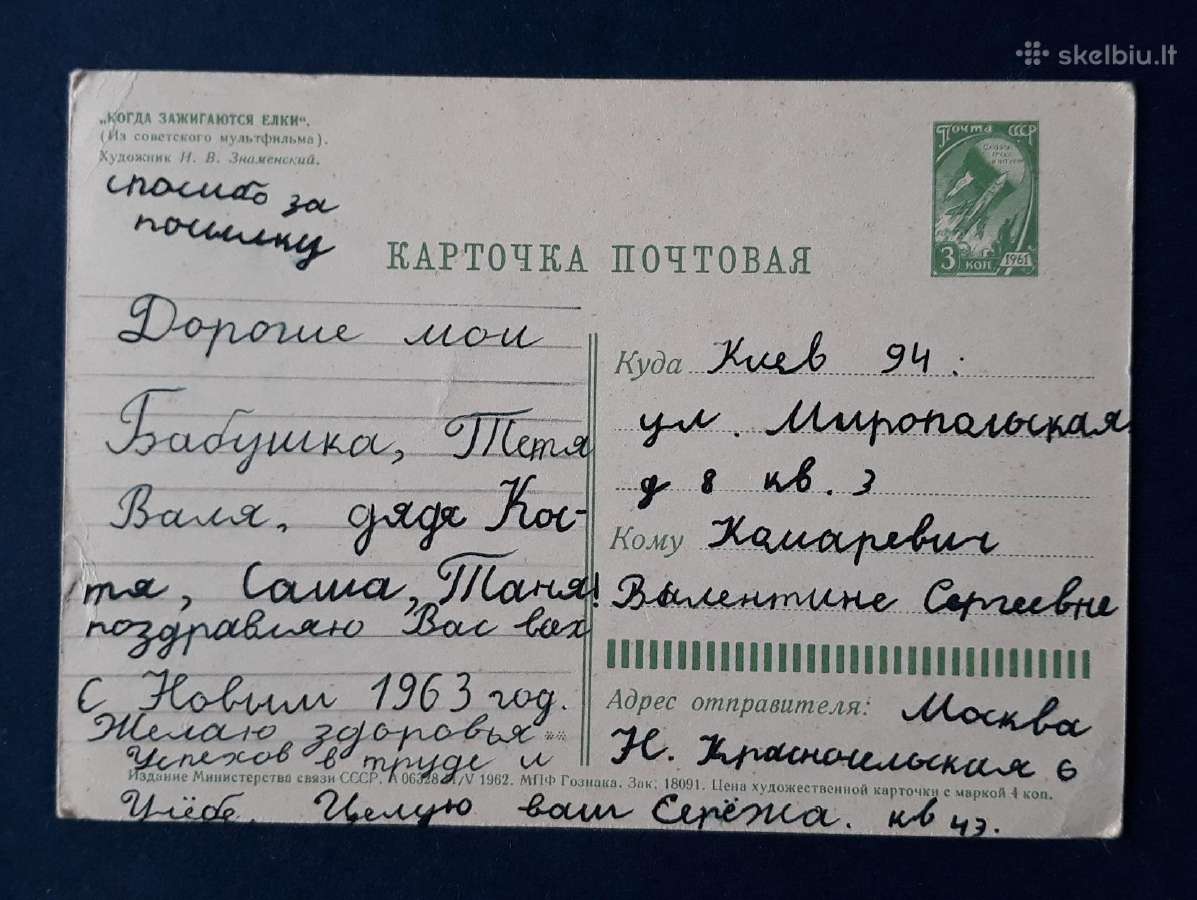 skelbiu.lt
„КОГДА ЗАЖИГАЮТСЯ ЕЛКИ“.
(Из советского мультфильма).
Художник И. В. Знаменский.
спосибо за
посилку
КАРТОЧКА ПОЧТОВАЯ
Почта СССР
3 КОП 1961
Дорогие мои
Бабушка, Тетя
Валя, дядя Кос-
тя, Саша, Таня!
поздравляю Вас всех
С Новым 1963 год.
Желаю здоровья
Успехов в труде и
Учёбе. Целую ваш Серёжа.
Куда Киев 94.
ул. Миропольская
д 8 кв. 3
Кому Комаревич
Валентине Сергеевне
Адрес отправителя: Москва
Н. Красносельская 6
кв 43.
Издание Министерства связи СССР. А 06328 /V 1962. МПФ Гознака. Зак. 18091. Цена художественной карточки с маркой 4 коп.